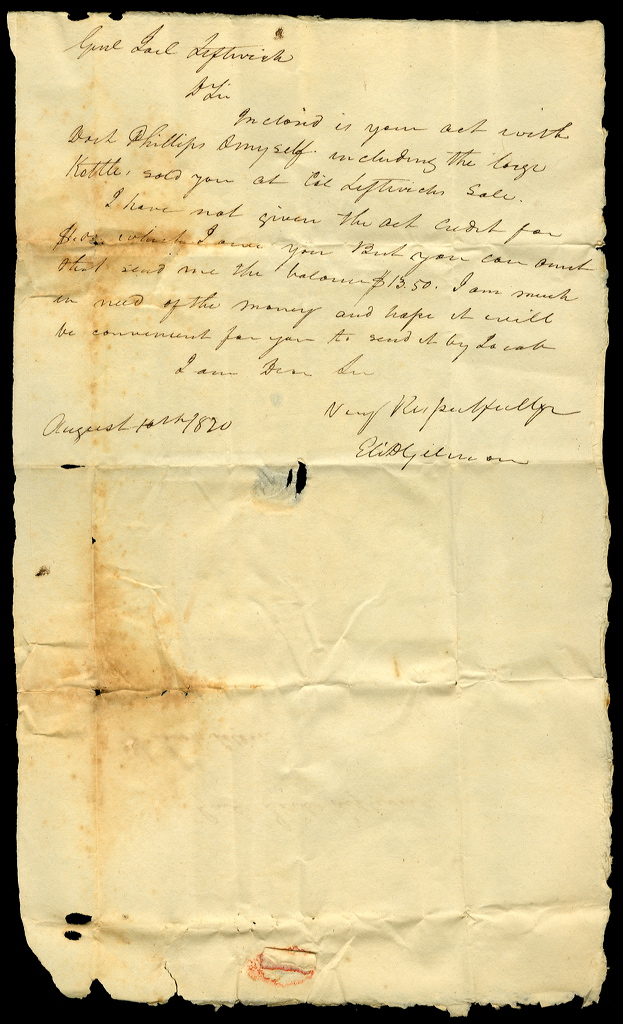 Genl Joel Leftwich
D Sir
Inclosd is your act with
Doct Phillips & myself including the large
Kettle, sold you at Col Leftwichs Sale.
I have not given the act credit for
which I owe you But you can
that send me the balance $13.50. I am much
in need of the money and hope it will
be convenient for you to send it by Jacob
I am Dear Sir
Very Respectfully
August 10th 1820
Eli Gilman